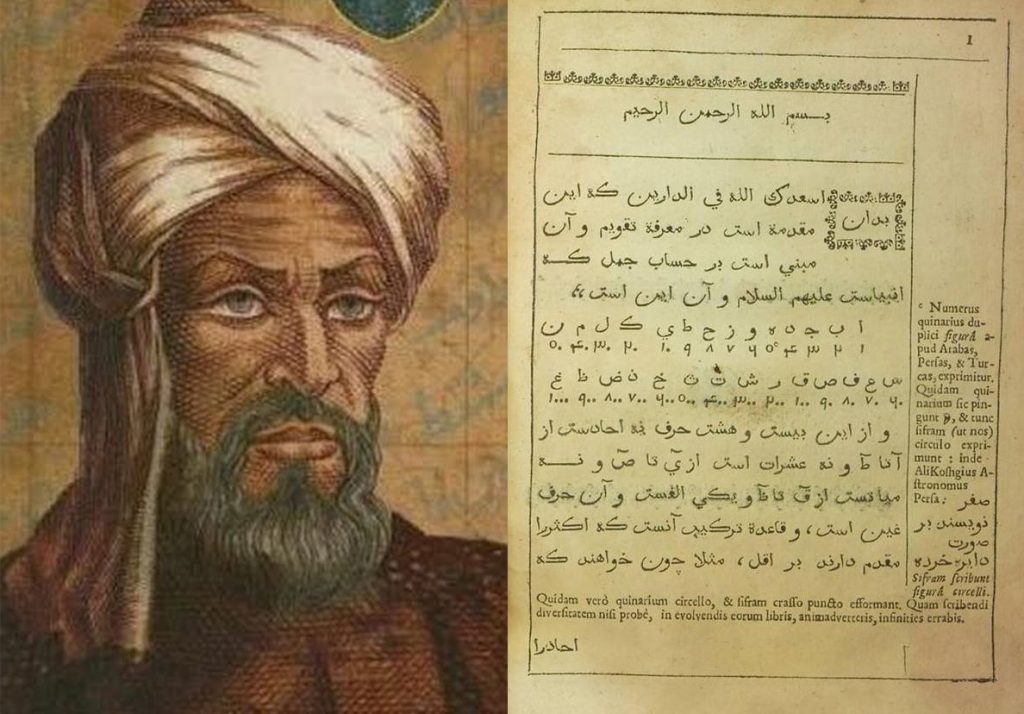 1
بسم الله الرحمن الرحيم
بدان
اسعدك الله في الدارين كه اين
مقدمة است در معرفة تقويم و آن
مبني است بر حساب جمل كه
انبياست عليهم السلام و آن اين است،،
ا ب ج د ه و ز ح ط ي ك ل م ن
۱ ۲ ۳ ۴ ۵ᶜ ۶ ۷ ۸ ۹ ۱۰ ۲۰ ۳۰ ۴۰ ۵۰
س ع ف ص ق ر ش ت ث خ ذ ض ظ غ
۶۰ ۷۰ ۸۰ ۹۰ ۱۰۰ ۲۰۰ ۳۰۰ ۴۰۰ ۵۰۰ ۶۰۰ ۷۰۰ ۸۰۰ ۹۰۰ ۱۰۰۰
و از اين بيست و هشت حرف نه احادست از
آ تا ط و نه عشرات است از ي تا ص و نه
مياتست از ق تا ظ و يكي الفست و آن حرف
غين است، و قاعدة تركيب آنست كه اكثررا
مقدم دارند بر اقل، مثلا چون خواهند كه
ᶜ Numerus
quinarius du-
plici figurâ a-
pud Arabas,
Persas, & Tur-
cas, exprimitur.
Quidam qui-
narium sic pin-
gunt, & tunc
sifram (ut nos)
circulo expri-
munt : inde
AliKoshgius A-
stronomus
Persa: صفر
نويسند بر
صورت
دايره خرده
Sifram scribunt
figurâ circelli.
Quidam verò quinarium circello, & sifram crasso puncto efformant. Quam scribendi
diversitatem nisi probè, in evolvendis eorum libris, animadverteris, infinities errabis.
احادرا